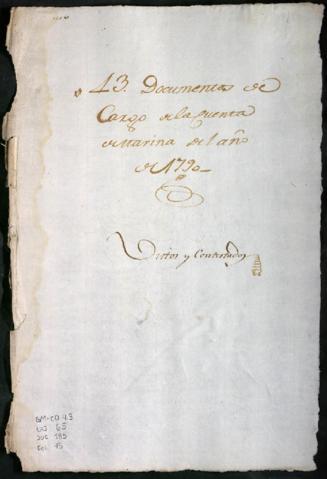 43. Documentos de
Cargo de la Cuenta
de Marina del año
de 1790
Vistos y Contextados
GM-CO 43
LIJ 65
DOC 185